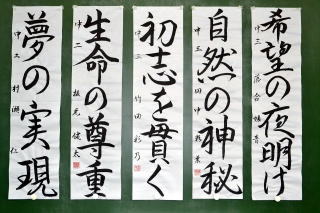 希望の夜明け
中三 落合
自然の神秘
中三 田中
初志を貫く
中三 竹田彩乃
生命の尊重
中二 健太
夢の実現
中二 村瀬